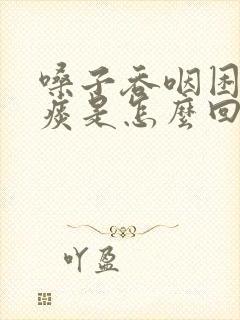 嗓子吞咽困
痰是怎麼回
吖盈